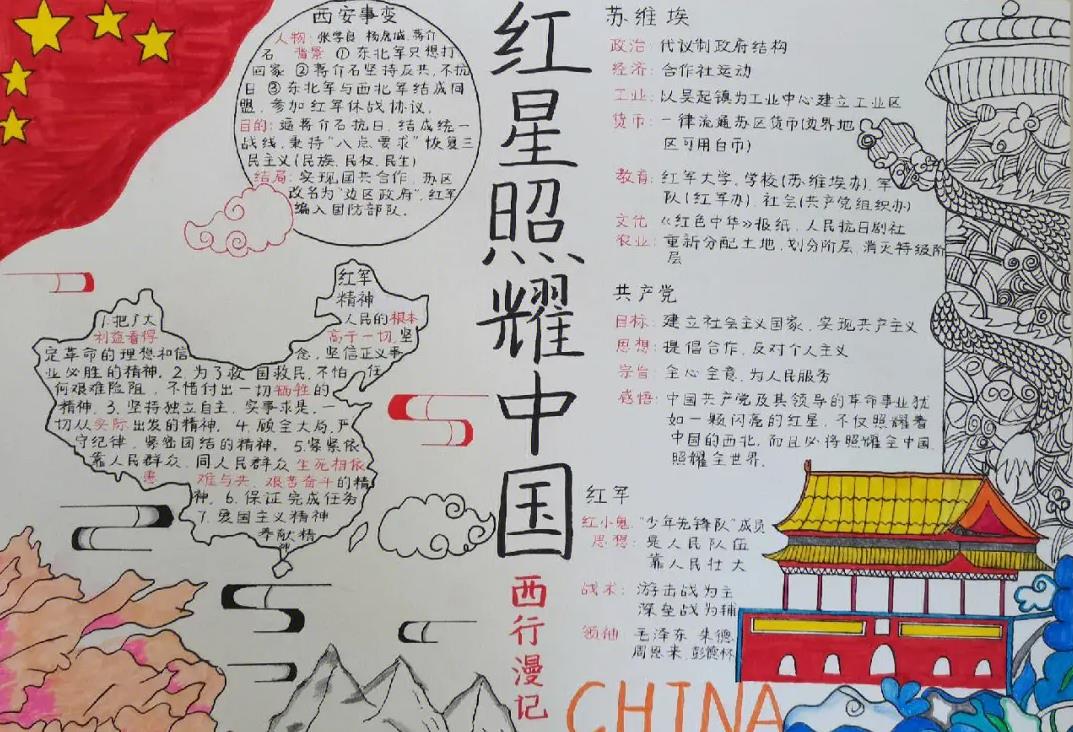 西安事变
人物：张学良 杨虎城 蒋介
石 背景 ①东北军只想打
回家 ②蒋介石坚持反共，不抗
日 ③东北军与西北军结成同
盟，参加红军休战协议。
目的：逼蒋介石抗日，结成统一
战线，秉持“八点要求”恢复三
民主义（民族、民权、民生）
结局：实现国共合作，苏区
改名为“边区政府”，红军
编入国防部队．
红军
精神
1.把广大
人民的根本
利益看得
高于一切，坚
定革命的理想和信
念，坚信正义事
业必胜的精神．2.为了救
国救民，不怕
任
何艰难险阻，不惜付出一切牺牲的
精神．3.坚持独立自主，实事求是，一
切从实际出发的精神．4.顾全大局，严
守纪律，紧密团结的精神．5.紧紧依
靠人民群众，同人民群众生死相依
患
难与共、艰苦奋斗的精
神．6.保证完成任务
7.爱国主义精神
奉献精
神
红星照耀中国
西行漫记
苏维埃
政治：代议制政府结构
经济：合作社运动
工业：以吴起镇为工业中心建立工业区
货币：一律流通苏区货币（边界地
区可用白币）
教育：红军大学，学校（苏维埃办），军
队（红军办），社会（共产党组织办）
文化《红色中华》报纸，人民抗日剧社
农业：重新分配土地，划分阶层，消灭特级阶
层
共产党
目标：建立社会主义国家，实现共产主义
思想：提倡合作，反对个人主义
宗旨：全心全意，为人民服务
感悟：中国共产党及其领导的革命事业犹
如一颗闪亮的红星，不仅照耀着
中国的西北，而且必将照耀全中国，
照耀全世界．
红军
红小鬼，“少年先锋队”成员
思想：是人民队伍
靠人民壮大
战术：游击战为主
深垒战为辅
领袖 毛泽东 朱德
周恩来 彭德怀
CHINA